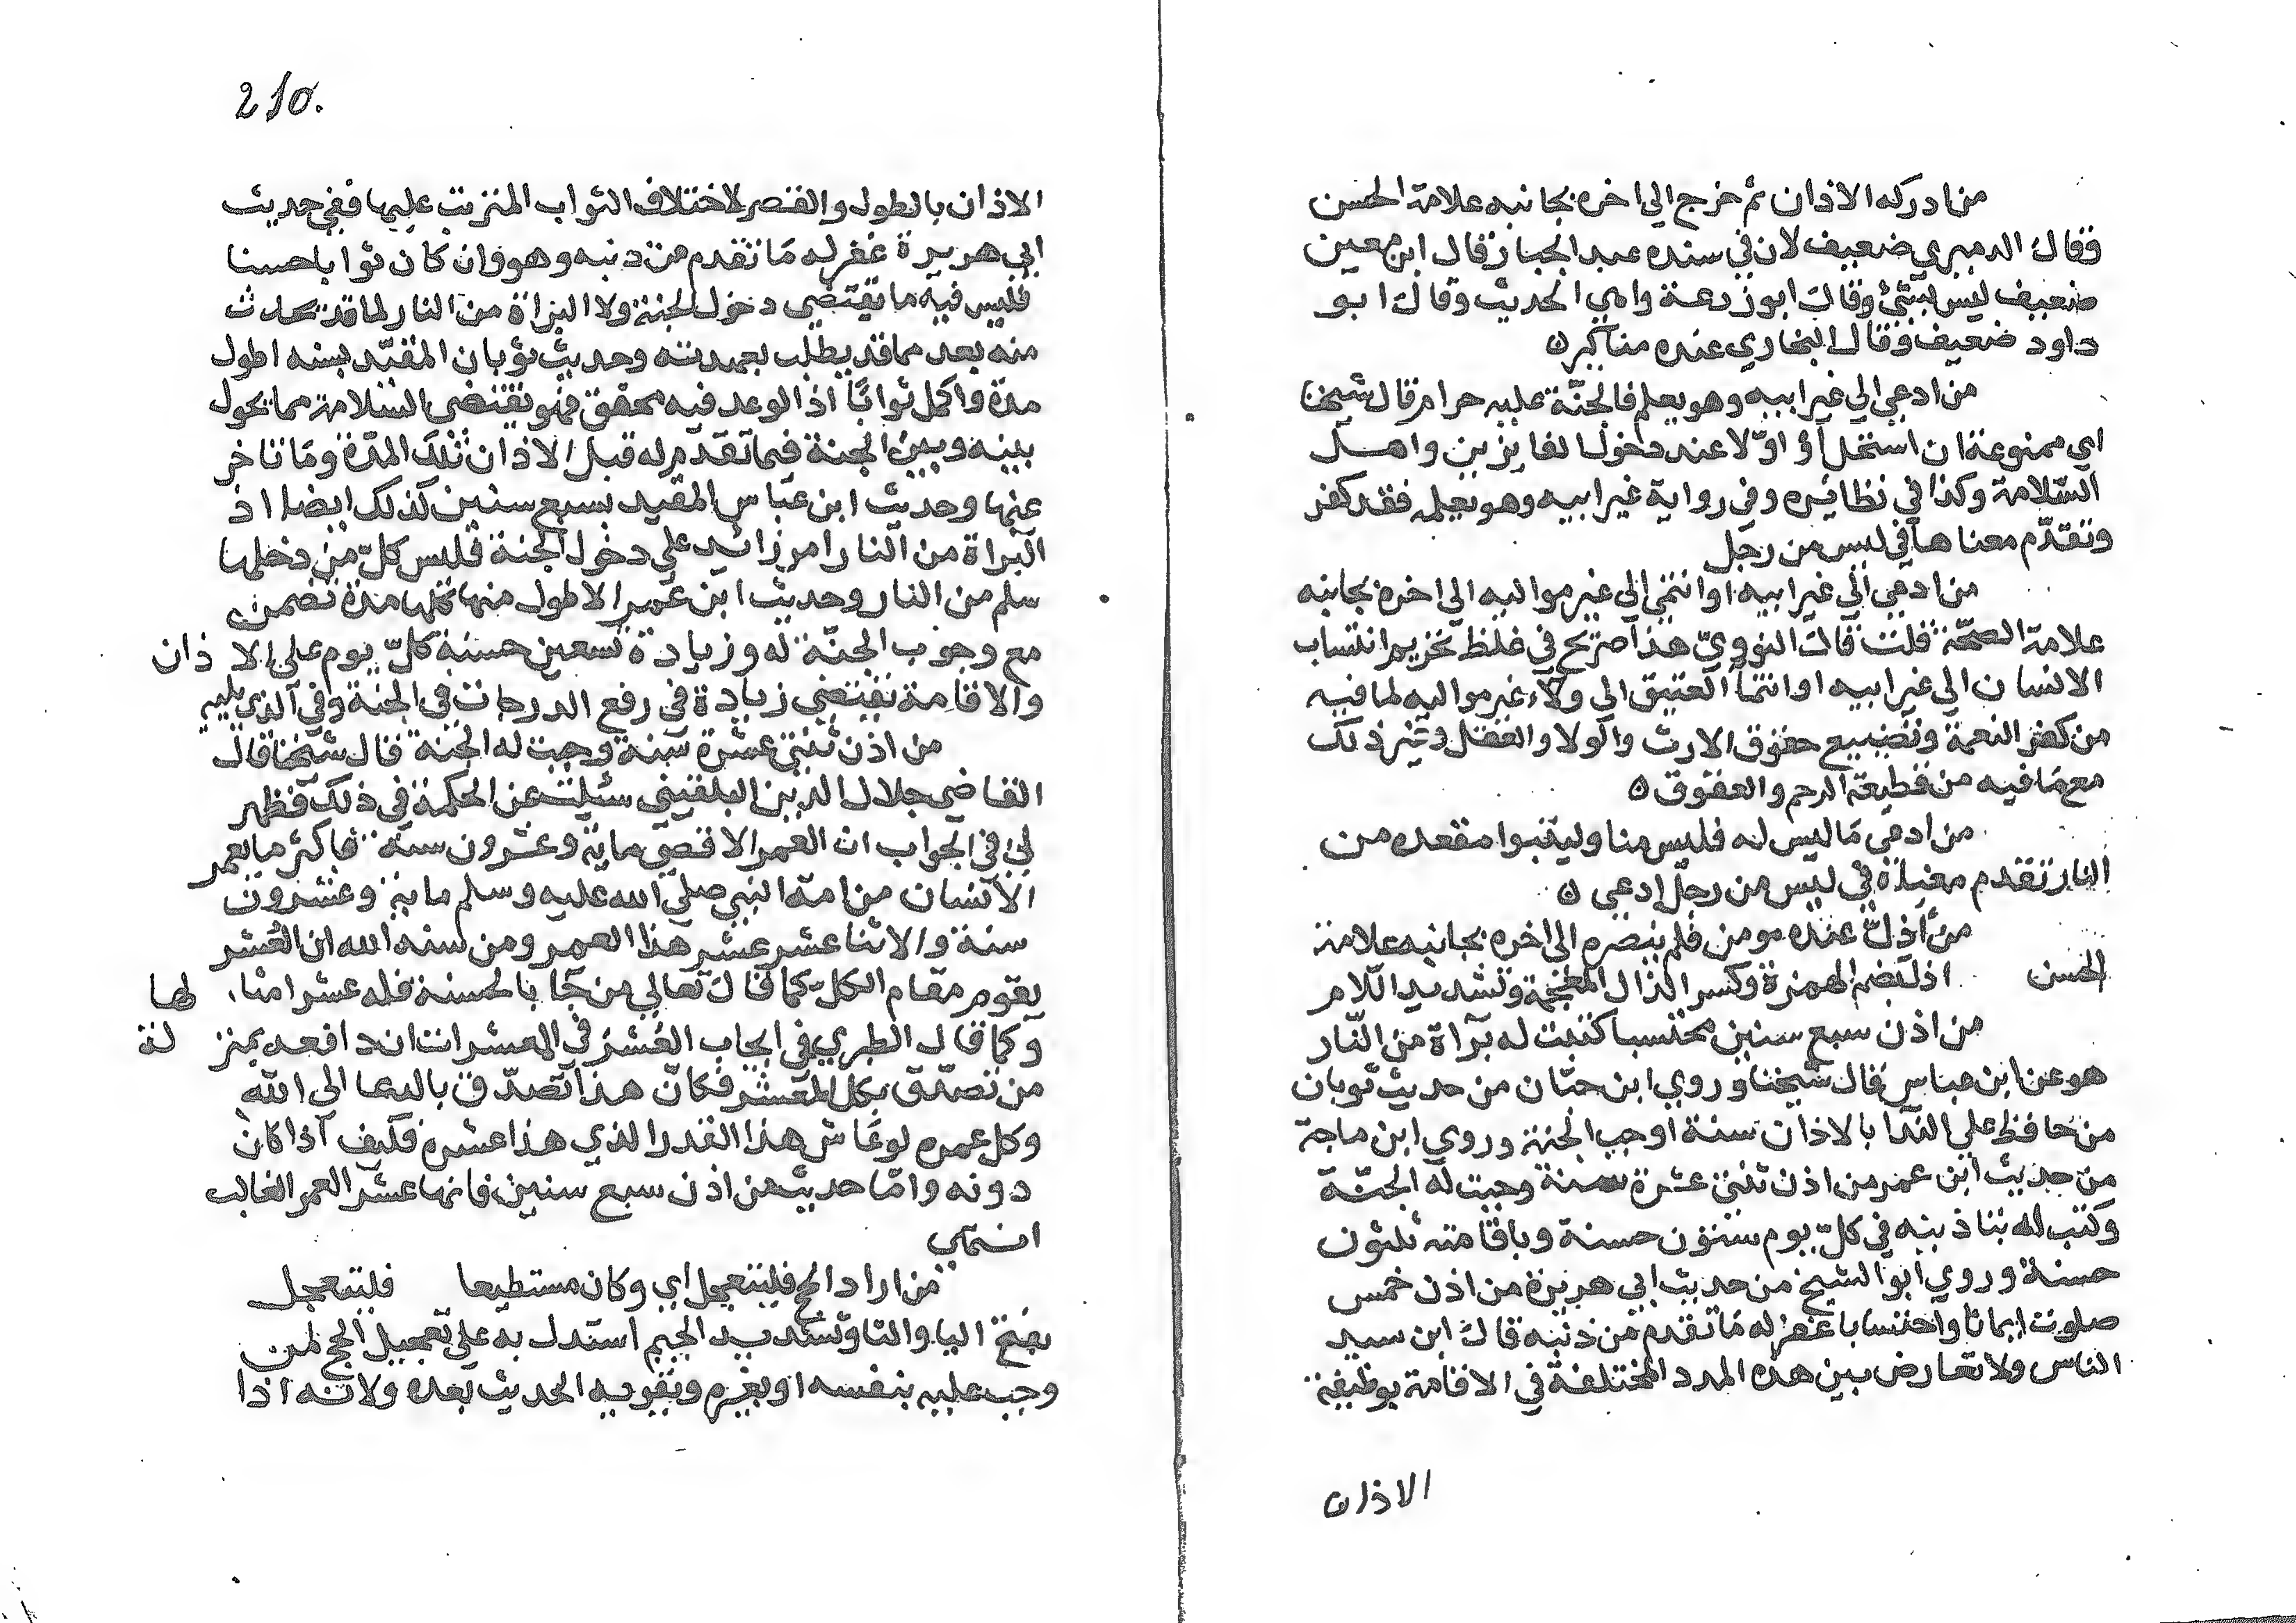 من ادركه الاذان ثم خرج الى اخره بجانبه علامة الحسن
وقال الدميري ضعيف لان في سنده عبد الجبار قال ابن معين
ضعيف ليس بشئ وقال ابو زرعة واهي الحديث وقال ابو
داود ضعيف وقال البخاري عنده مناكير ه
من ادعى الى غير ابيه وهو يعلم فالجنّة عليه حرام قال شيخنا
اي ممنوعة ان استحل او اوّلا عند دخول الفايزين واهل
السّلامة وكذا في نظائره وفي رواية غير ابيه وهو يعلم فقد كفر
وتقدّم معناها في ليس من رجل
من ادعى الى غير ابيه او انتمى الى غير مواليه الى اخره بجانبه
علامة الصحّة قلت قال النوويّ هذا صريح في غلظ تحريم انتساب
الانسان الى غير ابيه او انتما العتيق الى ولاء غير مواليه لما فيه
من كفر النعمة وتضييع حقوق الارث والولا والعقل وغير ذلك
مع مَا فيه من قطيعة الرحم والعقوق ه
من ادعى مَا ليس له فليس منا وليتبوا مقعده من
النار تقدم معناه في ليس من رجل ادعى ه
من أذلّ عنده مومن فلم ينصره الى اخره بجانبه علامة
الحسن اذل بضم الهمزة وكسر الذال المعجمة وتشديد اللام
من اذن سبع سنين محتسبا كتبت له برآة من النّار
هو عن ابن عباس قال شيخنا وروي ابن حبّان من حديث ثوبان
من حافظ على الندا بالاذان سنة اوجب الجنة وروي ابن ماجة
من حديث ابن عمر من اذن ثنتي عشرة سنة وجبت له الجنّة
وكتب له بتاذينه في كلّ يوم ستون حسنة وباقامته ثلثون
حسنة وروي ابو الشيخ من حديث ابي هريرة من اذن خمس
صلوت ايمانا واحتسابا غفر له مَا تقدم من ذنبه قال ابن سيد
الناس ولا تعارض بين هذه المدد المختلفة في الاقامة بوظيفة
الاذان
210.
الاذان بالطول والقصر لاختلاف الثواب المترتب عليها ففي حديث
ابي هريرة غفر له مَا تقدم من ذنبه وهو وان كان ثوابا حسنا
فليس فيه ما يقتضي دخول الجنة ولا البراة من النار لما قد يحدث
منه بعد مما قد يطلب بعهدته وحديث ثوبان المقيّد بسنه اطول
مدة واكمل ثوابًا اذ الوعد فيه محقق فهو يقتضى السّلامة مما يحول
بينه وبين الجنة فيما تقدم له قبل الاذان تلك المدّة ومَا تاخر
عنها وحديث ابن عبّاس المقيد بسبع سنين كذلك ايضا اذ
البراة من النار امر زائد على دخول الجنة فليس كلّ من دخلها
سلم من النار وحديث ابن عمير الاطول منها كلها مدة تضمن
مع وجوب الجنّة له وزيادة تسعين حسنة كلّ يوم على الاذان
والاقامة تقتضي زيادة في رفع الدرجات في الجنة وفي الذي يليه
من اذن ثنتي عشرة سنة وجبت له الجنة قال شيخنا قال
القاضي جلال الدين البلقيني سئلت عن الحكمة في ذلك فظهر
لي في الجواب ان العمر الاقصى ماية وعشرون سنة فاكثر ما يعمر
الانسان من امة النبي صلى الله عليه وسلم ماية وعشرون
سنة والاثنا عشر عشر هذا العمر ومن سنة الله ان العُشر
يقوم مقام الكل كما قال تعالى من جَا بالحسنة فله عشر امثالها
وكما قال الطبري في ايجاب العُشر في المعشرات ان دافعه بمنزلة
من تصدّق بكل المعشر فكانّ هذا تصدّق بالدعا الى الله
وكل عمره لو عَاش هذا القدر الذي هذا عشره فكيف اذا كان
دونه وامّا حديث من اذن سبع سنين فانها عشر العمر الغالب
انتهى
من اراد الحج فليتعجل اي وكان مستطيعا فليتعجل
بفتح اليا والتا وتشديد الجيم استدل به على تعجيل الحج لمن
وجب عليه بنفسه او بغيره ويقويه الحديث بعده ولانه اذا